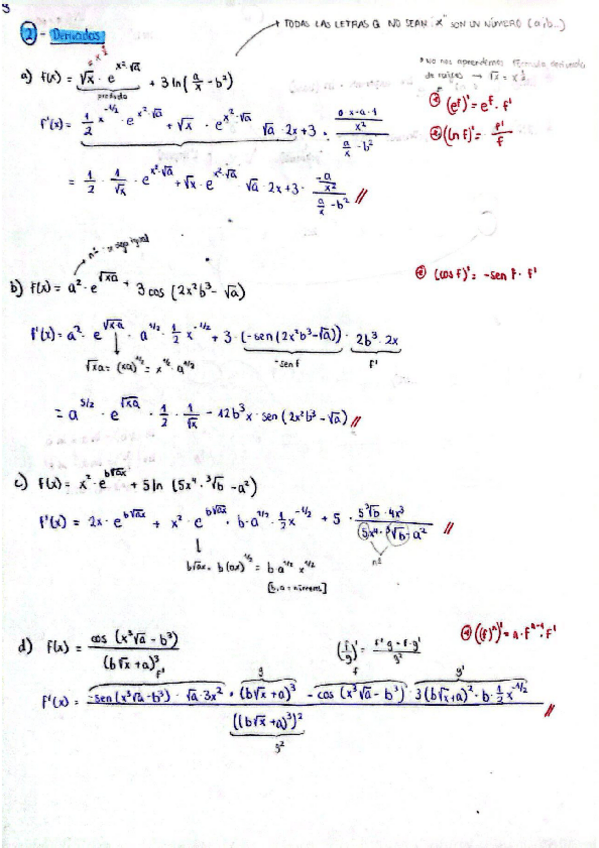 3
→ TODAS LAS LETRAS Q NO SEAN "x" SON UN NÚMERO (a,b...)
2 - Derivadas
* No nos aprendemos fórmula derivada
de raíces → √x = x^½
a) f(x) = √x · e^(x²·√a) + 3 ln(a/x - b²)
producto
(e^f)' = e^f · f'
(ln f)' = f'/f
f'(x) = 1/2 x^(-1/2) · e^(x²·√a) + √x · e^(x²·√a) √a · 2x + 3 · ((0·x - a·1)/x²)/(a/x - b²)
= 1/2 · 1/√x · e^(x²·√a) + √x · e^(x²·√a) √a · 2x + 3 · (-a/x²)/(a/x - b²) //
b) f(x) = a² · e^(√xa) + 3 cos (2x²b³ - √a)
(cos f)' = -sen f · f'
f'(x) = a² · e^(√x·a) · a^(1/2) · 1/2 x^(-1/2) + 3 · (-sen (2x²b³ - √a)) · 2b³ · 2x
-sen f f'
√xa = (xa)^(1/2) = x^(1/2) · a^(1/2)
= a^(5/2) · e^(√xa) · 1/2 · 1/√x - 12b³x · sen (2x²b³ - √a) //
c) f(x) = x² · e^(b√ax) + 5 ln (5x⁴ · ³√b - a²)
f'(x) = 2x · e^(b√ax) + x² · e^(b√ax) · b · a^(1/2) · 1/2 x^(-1/2) + 5 · (5 ³√b · 4x³)/(5x⁴ · ³√b - a²) //
nº
b√ax = b(ax)^(1/2) = b a^(1/2) x^(1/2)
[b, a = números]
d) f(x) = cos (x³√a - b³)/(b√x + a)³
(f/g)' = (f'·g - f·g')/g²
((f)^n)' = n · f^(n-1) · f'
f' g f g'
f'(x) = (-sen (x³√a - b³) · √a · 3x² · (b√x + a)³ - cos (x³√a - b³) · 3(b√x + a)² · b · 1/2 x^(-1/2))/((b√x + a)³)² //
g²